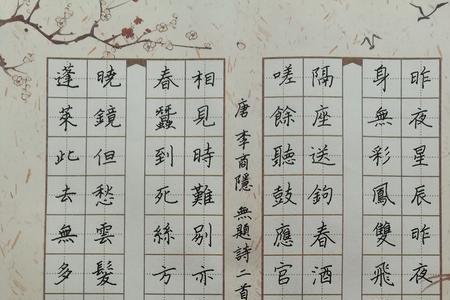 昨夜星辰昨夜
身無彩鳳雙飛
隔座送鉤春酒
嗟餘聽鼓應官
唐 李商隱 無題詩二首
相見時難別亦
春蠶到死絲方
曉鏡但愁雲鬢
蓬萊此去無多